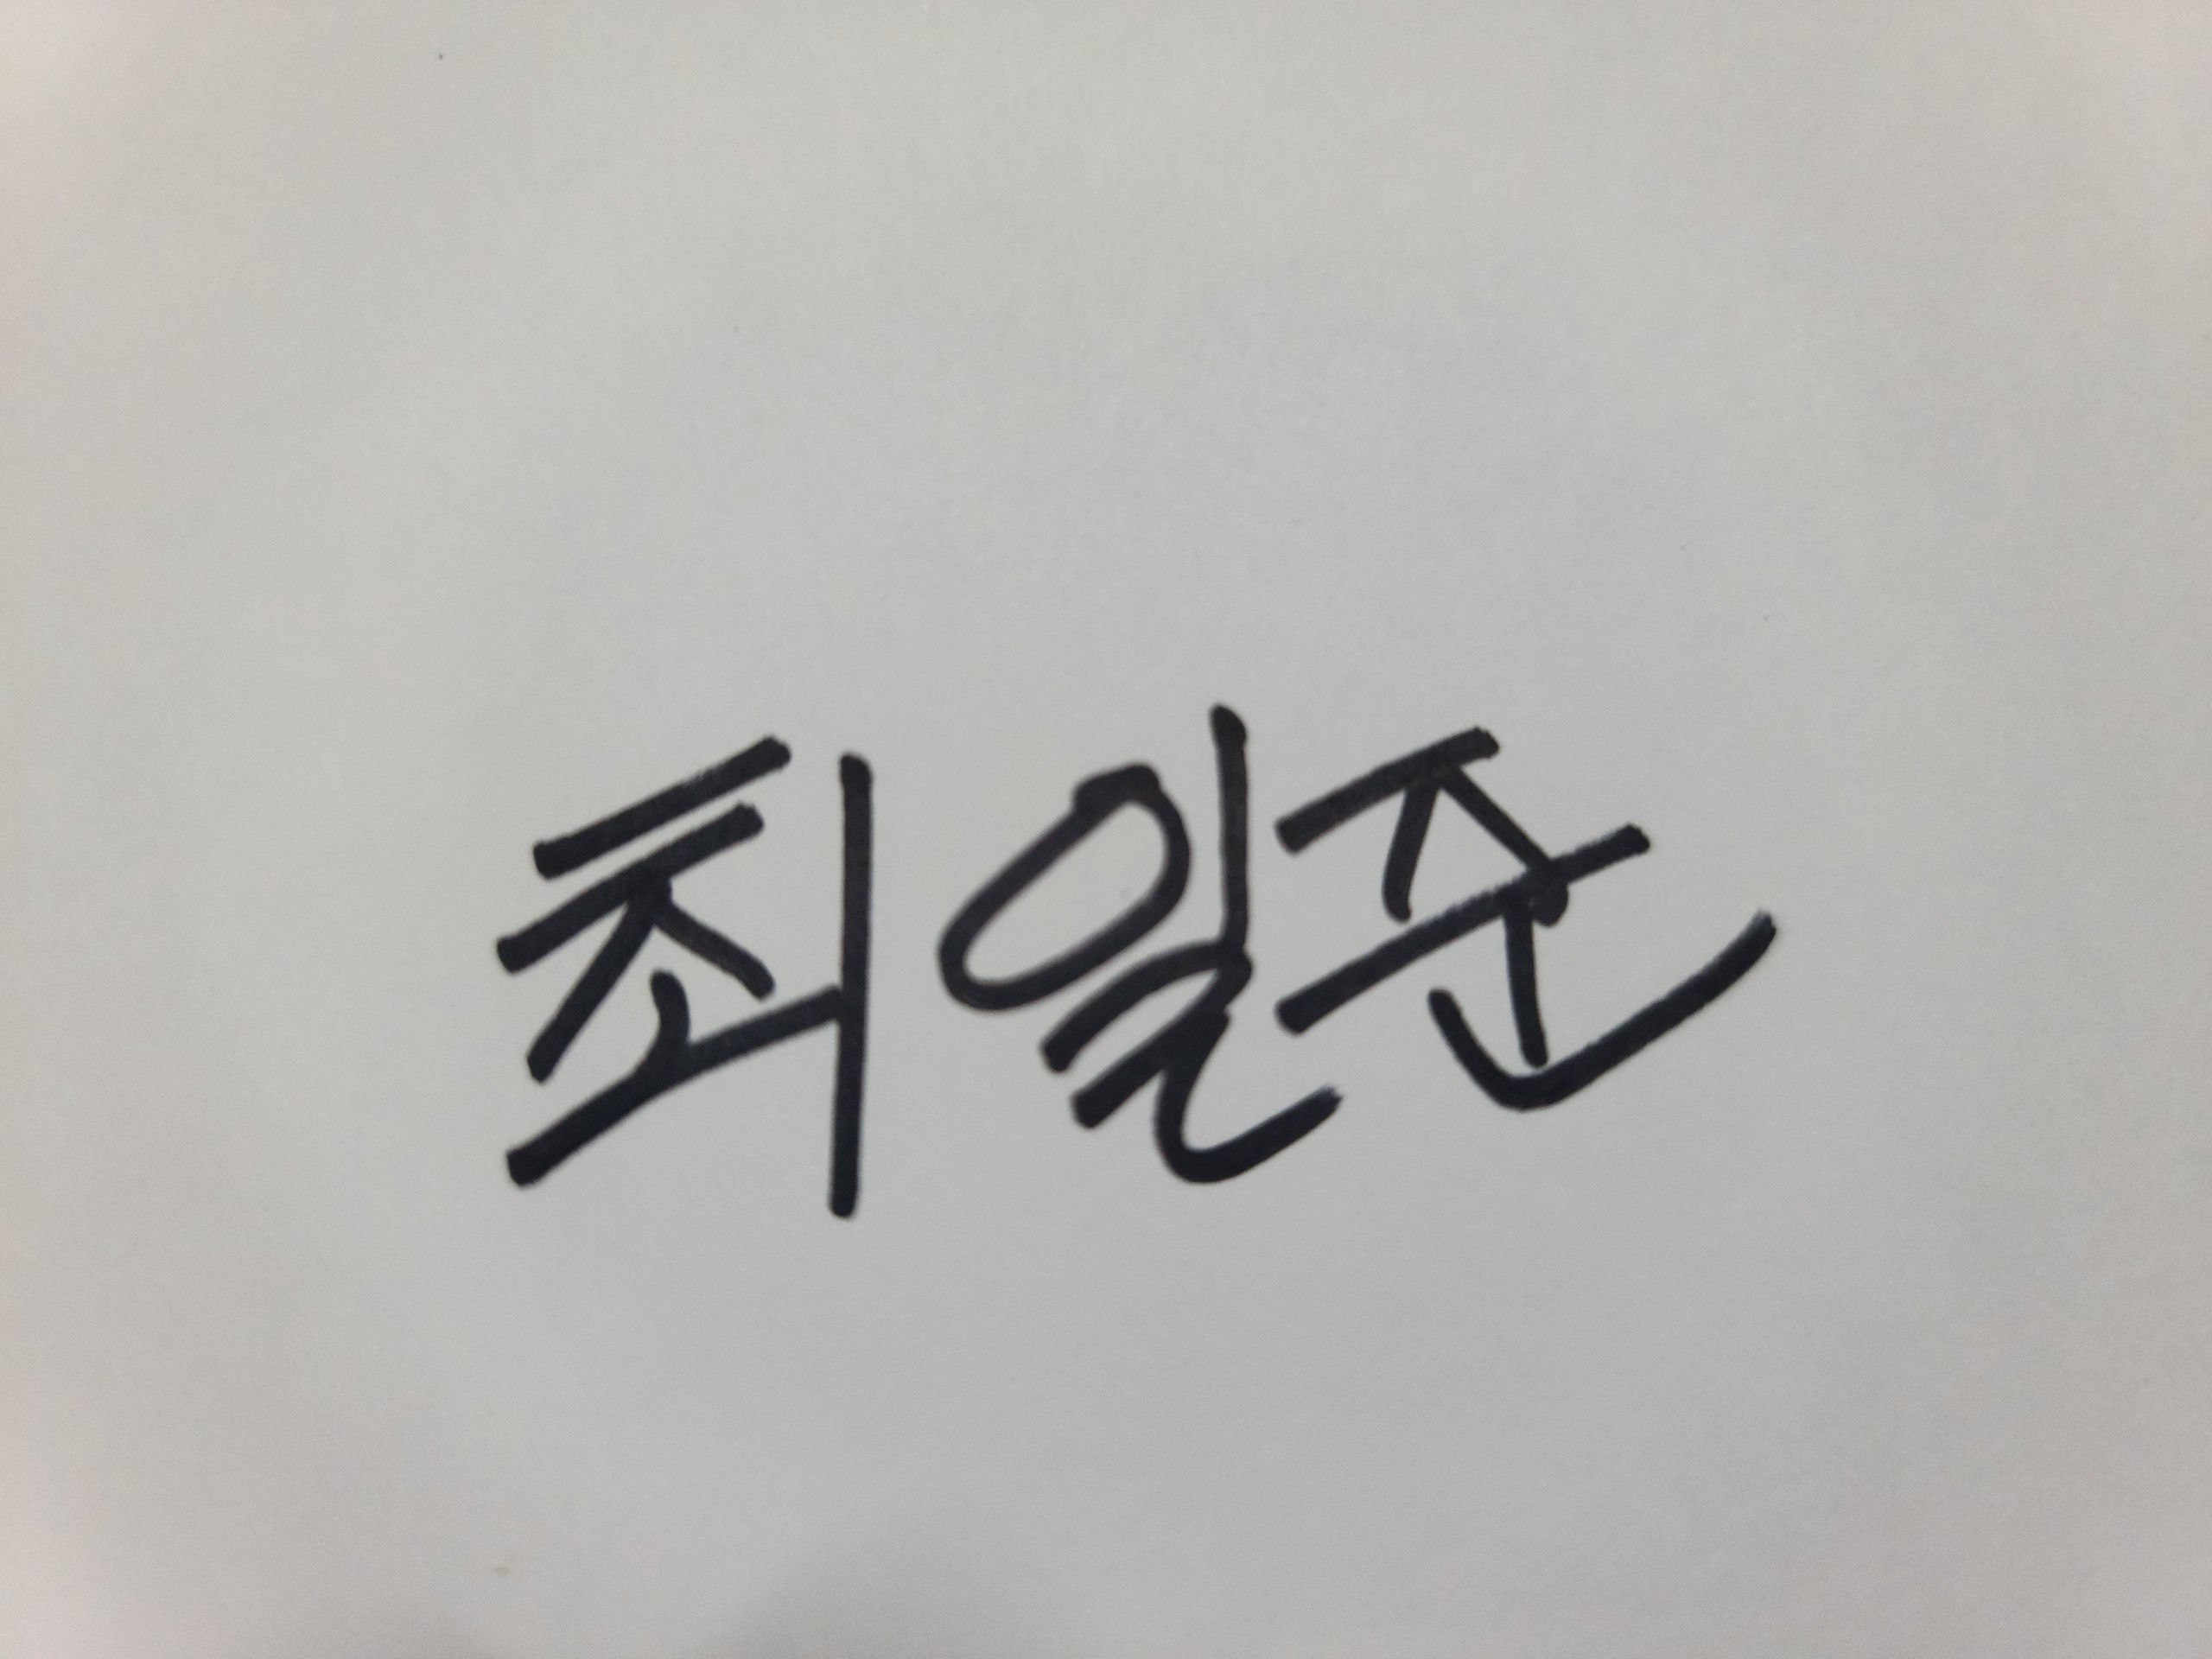 최일준